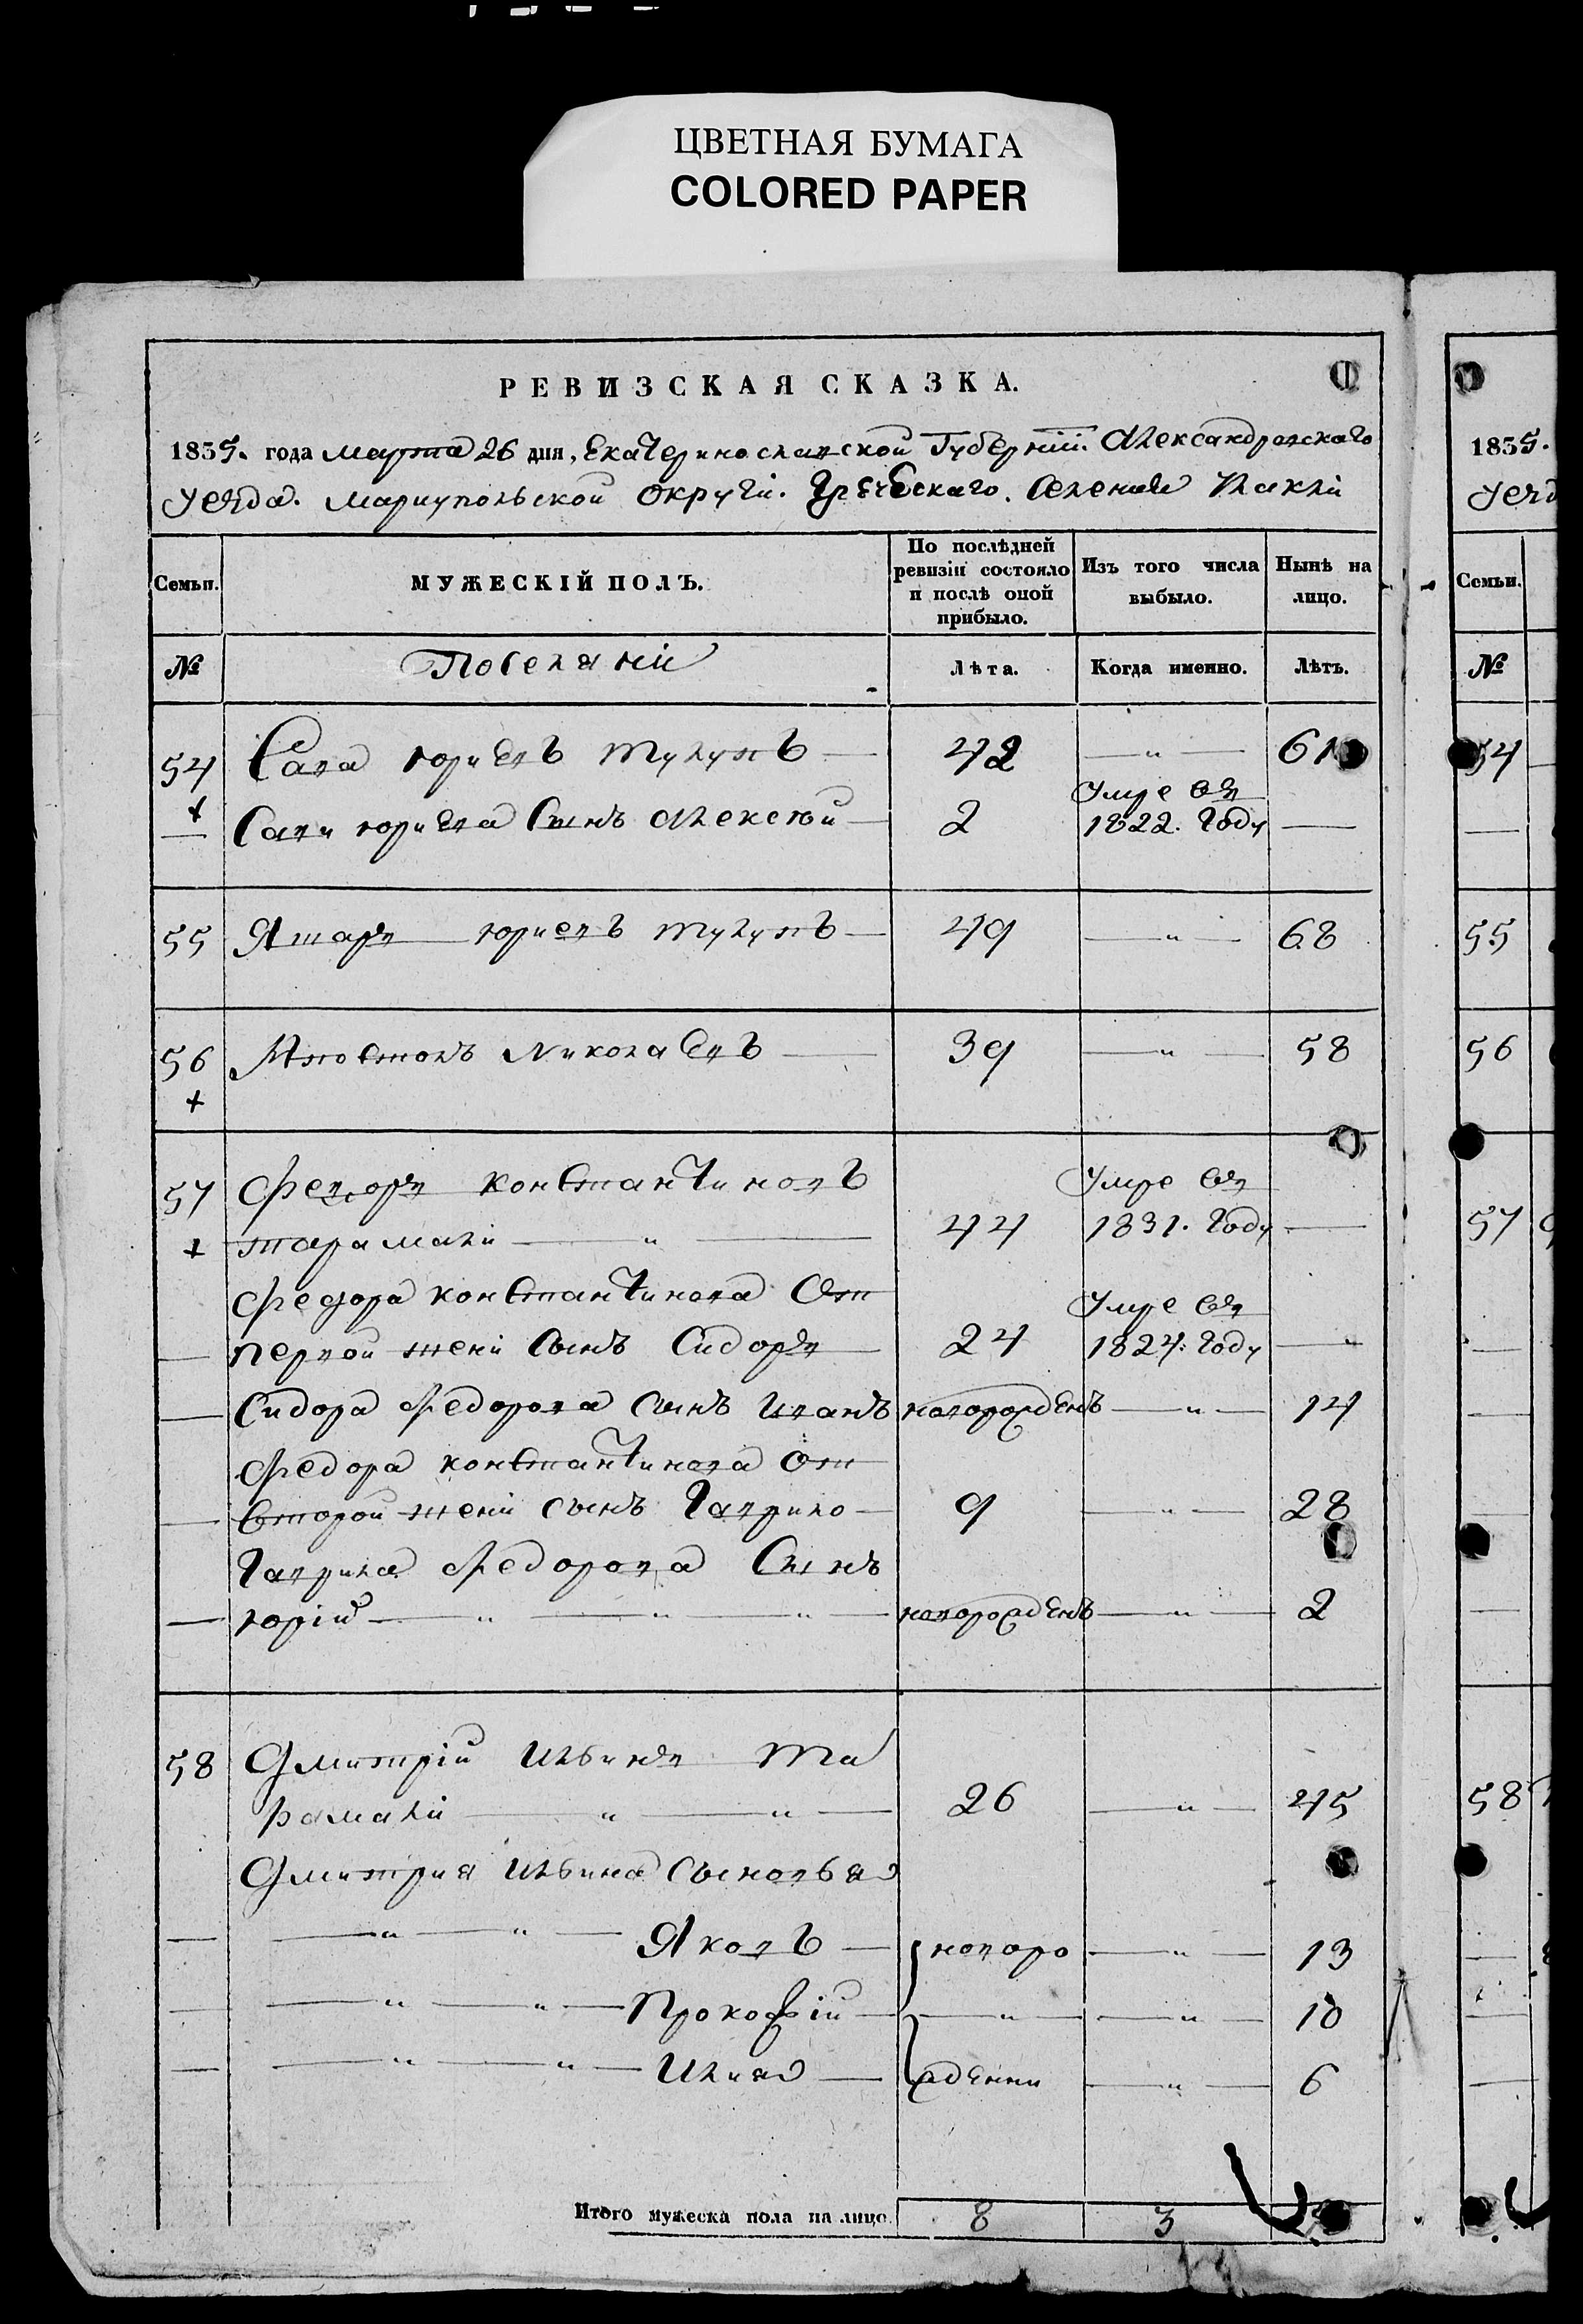 ЦВЕТНАЯ БУМАГА
COLORED PAPER
РЕВИЗСКАЯ СКАЗКА.
1835. года марта 26 дня, Екатеринославской Губерніи. Александровскаго
Уезда. Мариупольской округи. Греческаго. Селения
1835.
Семьи.
МУЖЕСКІЙ ПОЛЪ.
По послѣдней ревизіи состояло и послѣ оной прибыло.
Изъ того числа выбыло.
Нынѣ на лицо.
Семьи.
№
Поселяни
Лѣта.
Когда именно.
Лѣтъ.
№
54 Сава юриевъ тукувъ 42 — " — 61
54
Умре въ
Сави юриева Сынъ Алексей 2 1822. Году —
55 юриевъ тукувъ 49 — " — 68
55
56 Апостолъ Николаевъ 39 — " — 58
56
57 Федоръ Константиновъ Умре въ
тарамали — " — 44 1831. Году —
57
Федора Константинова От Умре въ
первой жени Сынъ Сидоръ 24 1824. Году — " —
Сидора Федорова Сынъ Иванъ новорожденъ — " — 14
Федора Константинова От
второй жени сынъ Гаврило 9 — " — 28
Гаврила Федорова Сынъ
юрій — " — " — " — новорожденъ — " — 2
58 Дмитрій Ильинъ Та
рамали — " — " — 26 — " — 45
58
Дмитрия Ильина Сыновья
— " — " — Яковъ — новоро — " — 13
— " — " — Прокофій — — " — — " — 10
— " — " — Илия — жденни — " — 6
Итого мужеска пола на лицо. 8 3